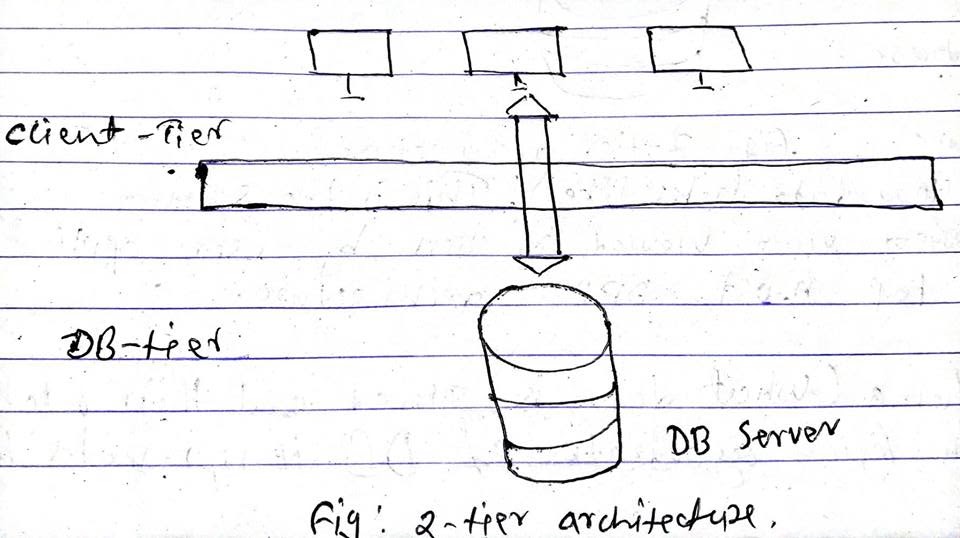 Client-Tier
DB-tier
DB Server
Fig: 2-tier architecture.